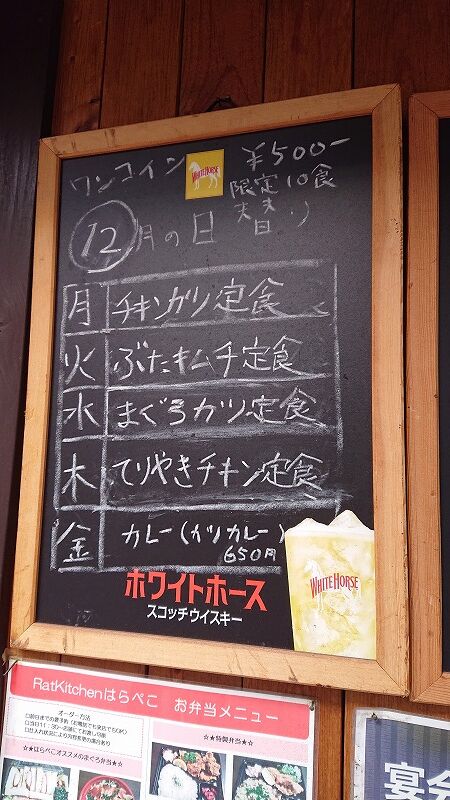 ワンコイン
WHITE HORSE
¥500-
限定10食
12月の日
月 チキンカツ定食
火 ぶたキムチ定食
水 まぐろカツ定食
木 てりやきチキン定食
金 カレー(カツカレー)
650円
ホワイトホース
スコッチウイスキー
WHITE HORSE
RatKitchenはらぺこ お弁当メニュー
オーダー方法
★★はらぺこオススメのまぐろ弁当★★
★★特製弁当★★
宴会